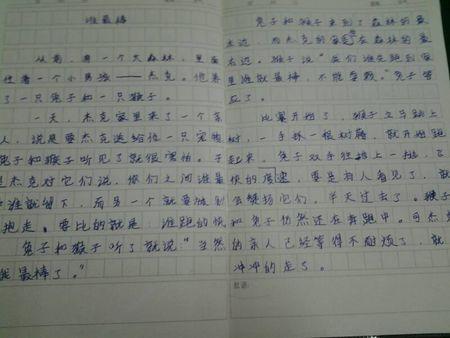 谁最棒
从前，有一个大森林，里面
住着一个小男孩——杰克。他养
了一只兔子和一只猴子。
一天，杰克家里来了一个客
人，说是要杰克送给他一只宠物
兔子和猴子听见了就很害怕。于
是杰克对它们说，你们之间谁最
棒谁就留下，而另一个就要被别
抱走。要比的就是谁跑的快
兔子和猴子听了就说"当然
我最棒了。"
兔子和猴子来到了森林的最
右边，而杰克的家在森林的最
左边。猴子说"我们谁先跑到家
里谁就最棒，不能要赖。"兔子答
应了。
比赛开始了，猴子立马跳上
树，一手抓一根树藤，就开始跑
起来，兔子双手往路上一趴，飞
快的度，要是有人看见了，就
会它们，半天过去了。猴子
和兔子仍然还在奔跑中。可杰克
的亲人已经等得不耐烦了，就
冲冲的走了。
批语：